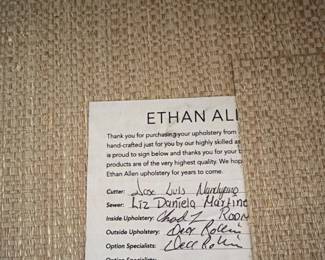 ETHAN ALL
Thank you for purchasing your upholstery from
hand-crafted just for you by our highly skilled a
is proud to sign below and thanks you for your b
products are of the very highest quality. We hop
Ethan Allen upholstery for years to come.
Cutter: Jose Luis
Sewer: Liz Daniela Martine
Inside Upholstery: Chad Z
Outside Upholstery: Rollins
Option Specialists: Rollin
Option Specialists: